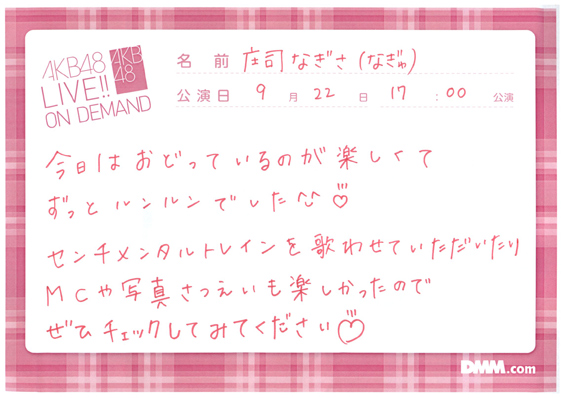 AKB48
LIVE!!
ON DEMAND
AKB
48
名 前 庄司なぎさ(なぎゅ)
公演日 9 月 22 日 17 : 00 公演
今日はおどっているのが楽しくて
ずっとルンルンでした^^♡
センチメンタルトレインを歌わせていただいたり
MCや写真さつえいも楽しかったので
ぜひチェックしてみてください♡
DMM.com